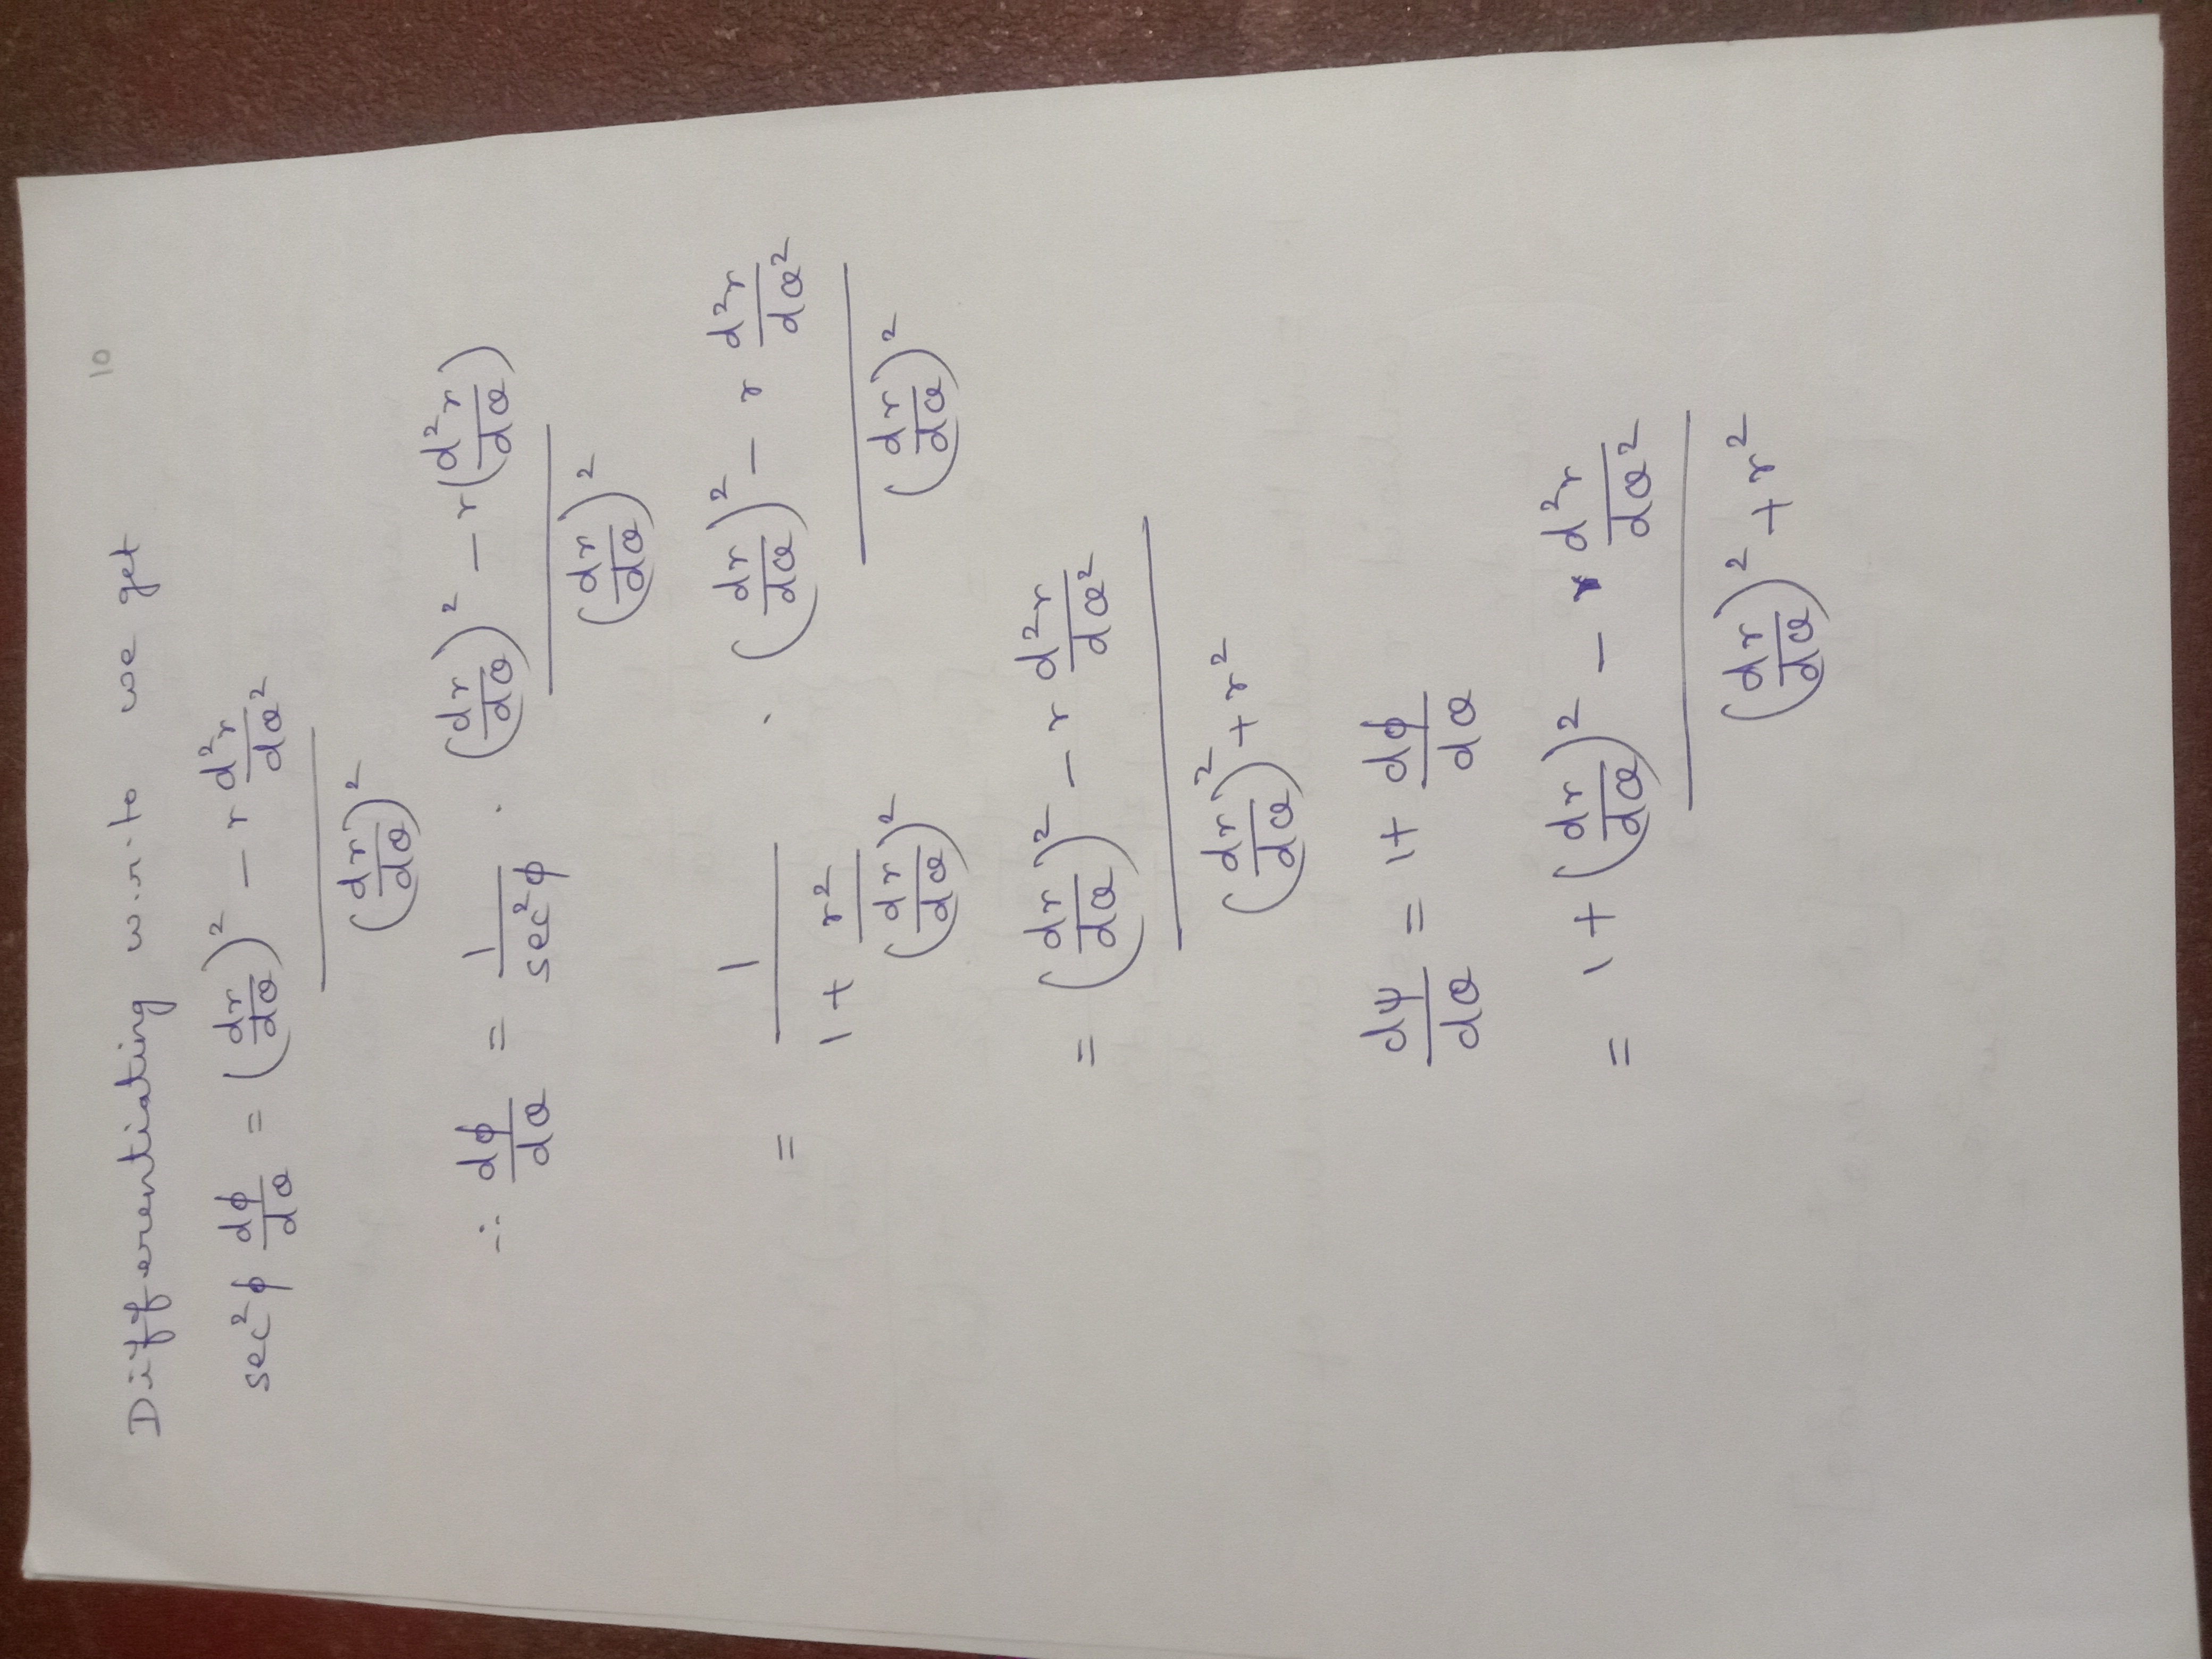 10
Differentiating w.r.to we get
sec²φ dφ/dθ = ((dr/dθ)² - r d²r/dθ²) / (dr/dθ)²
∴ dφ/dθ = 1/sec²φ . ((dr/dθ)² - r(d²r/dθ)) / (dr/dθ)²
= 1/(1 + r²/(dr/dθ)²) . ((dr/dθ)² - r d²r/dθ²) / (dr/dθ)²
= ((dr/dθ)² - r d²r/dθ²) / ((dr/dθ)² + r²)
dψ/dθ = 1 + dφ/dθ
= 1 + ((dr/dθ)² - r d²r/dθ²) / ((dr/dθ)² + r²)